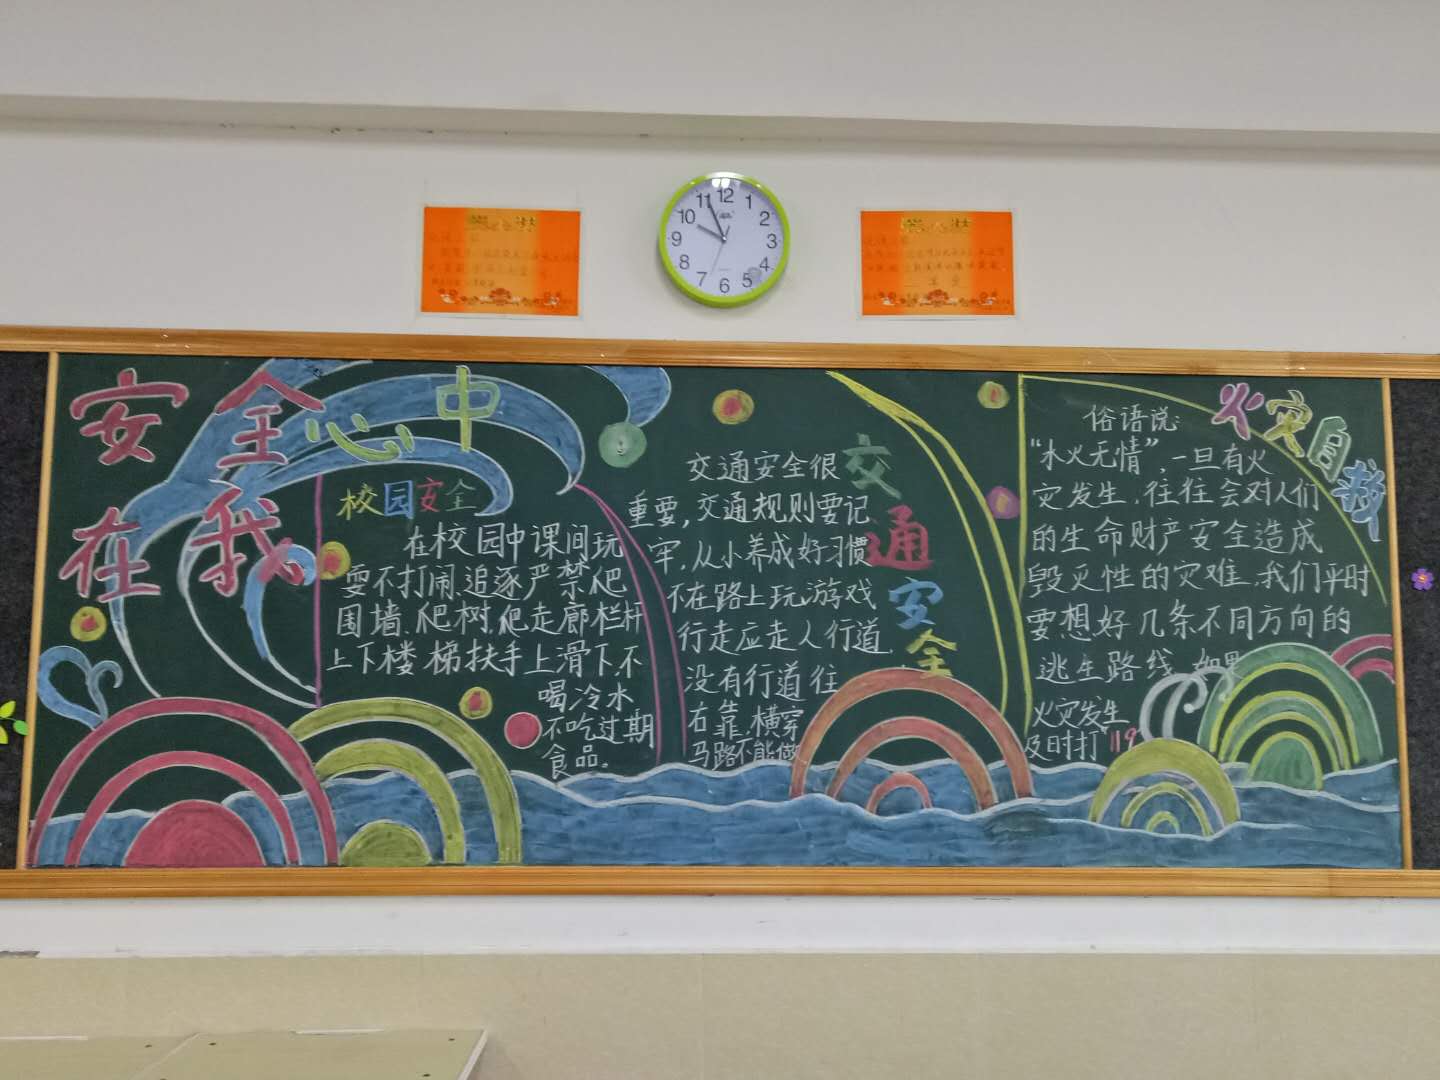 12
11
1
10
2
9
3
8
4
7
5
6
安全心中
在我
校园安全
在校园中课间玩
耍不打闹、追逐严禁爬
围墙、爬树、爬走廊栏杆
上下楼梯扶手上滑下、不
喝冷水
不吃过期
食品。
交通安全
交通安全很
重要,交通规则要记
牢,从小养成好习惯
不在路上玩游戏
行走应走人行道,
没有行道往
右靠,横穿
马路不能做
火灾自救
俗语说:
“水火无情”,一旦有火
灾发生,往往会对人们
的生命财产安全造成
毁灭性的灾难,我们平时
要想好几条不同方向的
逃生路线,如果
火灾发生
及时打“119